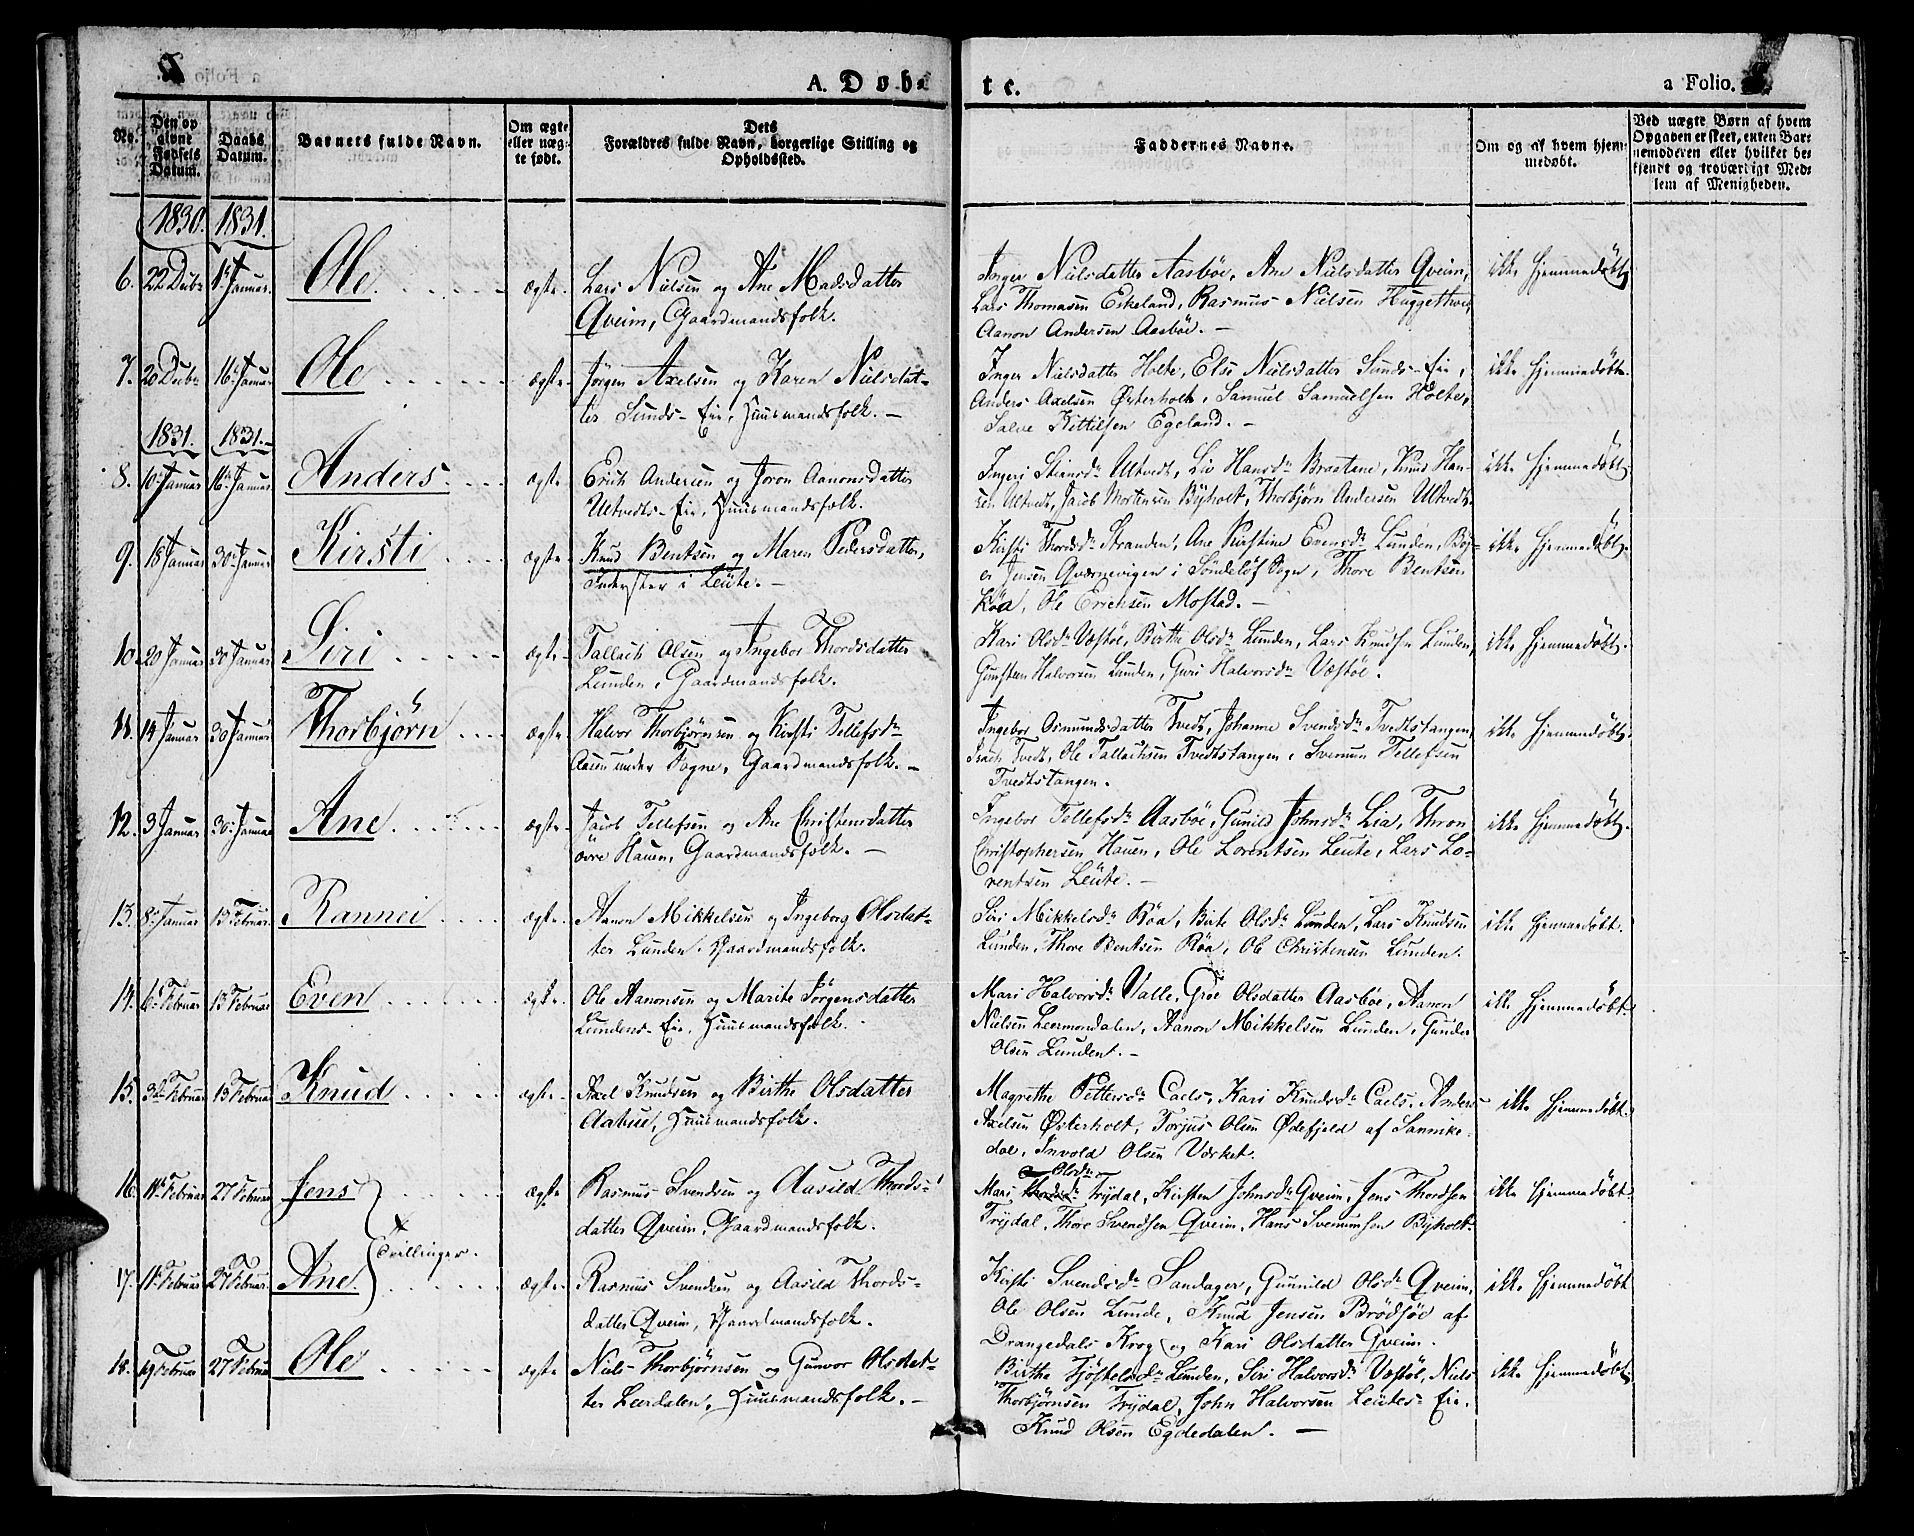 A. Døbte.
a Folio.
No.
Den opgivne Fødsels Datum.
Daabs Datum.
Barnets fulde Navn.
Om ægte eller uægte født.
Dets Forældres fulde Navn, borgerlige Stilling og Opholdssted.
Faddernes Navne.
Om og af hvem hjemmedøbt.
Ved uægte Børn af hvem Opgaven er skeet, enten Barnemoderen eller hvilket bekjendt og troværdigt Medlem af Menigheden.
1830. 1831.
6. 22 Decbr 1ste Januar. Ole ægte Lars Nielsen og Ane Madsdatter
Qveim, Gaardmandsfolk.
Inger Nielsdatter Aasbøe, Ane Nielsdatter Qveim,
Lars Thomasen Eskeland, Rasmus Nielsen
Aanon Andersen Aasbøe. –
ikke hjemmedøbt.
7. 20 Decbr 16 Januar Ole ægte Jørgen Axelsen og Karen Nielsdat-
ter Sunds-Eie, Huusmandsfolk. –
Inger Nielsdatter Holte, Else Nielsdatter Sunds-Eie,
Anders Axelsen Østerholt, Samuel Samuelsen Holte,
Salve Kittilsen Egeland. –
ikke hjemmedøbt.
1831. 1831.
8. 10 Januar 16 Januar Anders ægte Erich Andersen og Joron Aanonsdatter
Ultvedts-Eie, Huusmandsfolk.
Ingeri Ultvedt, Liv Hansdr Braatane, Knud Han-
sen Ultvedt, Jacob Mortensen Byholt, Thorbjørn Andersen Ultvedt.
ikke hjemmedøbt.
9. 18 Januar 30 Januar Kirsti ægte Knud Bentsen og Maren Pedersdatter,
Inderster i Leüte. –
Kirsti Thordsdr Stranden, Ane Kirstine Evensdr Lunden, Bøy-
er Jensen Qvernevigen i Søndeløf Sogn, Thore Bentsen
Röa, Ole Erichsen Mostad. –
ikke hjemmedøbt.
10. 20 Januar 30 Januar Siri ægte Tallach Olsen og Ingebor Thordsdatter
Lunden, Gaardmandsfolk.
Kari Olsdr Væstøl, Birthe Olsdr Lunden, Lars Knudsen Lunden,
Gunsteen Halvorsen Lunden, Guri Halvorsdr Væstøl.
ikke hjemmedøbt.
11. 14 Januar 30 Januar Thorbjørn ægte Halvor Thorbjørnsen og Kirsti Tellefsdr
Aasen under Sogne, Gaardmandsfolk. –
Ingebor Osmundsdatter Tvedt, Johanne Svendsdr Tvedtstangen,
Isach Tvedt, Ole Tallachsen Tvedtstangen, Svenum Tellefsen
Tvedtstangen.
ikke hjemmedøbt.
12. 3 Januar 30 Januar Ane ægte Jacob Tellefsen og Ane Christensdatter
övre Hauen, Gaardmandsfolk. –
Ingebor Tellefsdr Aasbøe, Gunild Johnsdr Lia, Thron
Christophersen Hauen, Ole Lorentsen Leüte, Lars Lo-
rentsen Leüte. –
ikke hjemmedøbt.
13. 8 Januar 13 Februar Rannei ægte Aanon Mikkelsen og Ingeborg Olsdat-
ter Lunden, Gaardmandsfolk.
Siri Mikkelsdr Röa, Birte Olsdr Lunden, Lars Knudsen
Lunden, Thore Bentsen Röa, Ole Christensen Lunden.
ikke hjemmedøbt.
14. 6 Februar 13 Februar Even ægte Ole Aanonsen og Marite Jörgensdatter
Lundens-Eie, Huusmandsfolk.
Mari Halvorsdr Valle, Groe Olsdatter Aasbøe, Aanon
Nielsen Leermondalen, Aanon Mikkelsen Lunden, Gunder
Olsen Lunden. –
ikke hjemmedøbt.
15. 3 Februar 13 Februar Knud ægte Axel Knudsen og Birthe Olsdatter
Aabue, Huusmandsfolk.
Magrethe Pettersdr Caels, Kari Knudsdr Caels, Anders
Axelsen Østerholt, Torjus Olsen Ødefjeld af Sannike-
dal, Invold Olsen Værket.
ikke hjemmedøbt.
16. 11 Februar 27 Februar Jens ægte Rasmus Svendsen og Aasild Thords-
datter Qveim, Gaardmandsfolk.
Mari Olsdr Trydal, Kirsten Johnsdr Qveim, Jens Thordsen
Trydal, Thore Svendsen Qveim, Hans Svenumsen Byholt.
ikke hjemmedøbt.
Tvillinger.
17. 11 Februar 27 Februar Ane ægte Rasmus Svendsen og Aasild Thords-
datter Qveim, Gaardmandsfolk.
Kirsti Svendsdr Sandager, Gunnild Olsdr Qveim,
Ole Olsen Lunde, Knud Jensen Brödsöe af
Drangedals Krog og Kari Olsdatter Qveim.
ikke hjemmedøbt
18. 19 Februar 27 Februar Ole ægte Niels Thorbjørnsen og Gunvor Olsdat-
ter Leerdalen, Huusmandsfolk. –
Birthe Lunden, Siri Halvorsdr Væstöl, Niels
Thorbjörnsen Trydal, John Halvorsen Leütes-Eie,
Knud Olsen Egdedalen. –
ikke hjemmedøbt